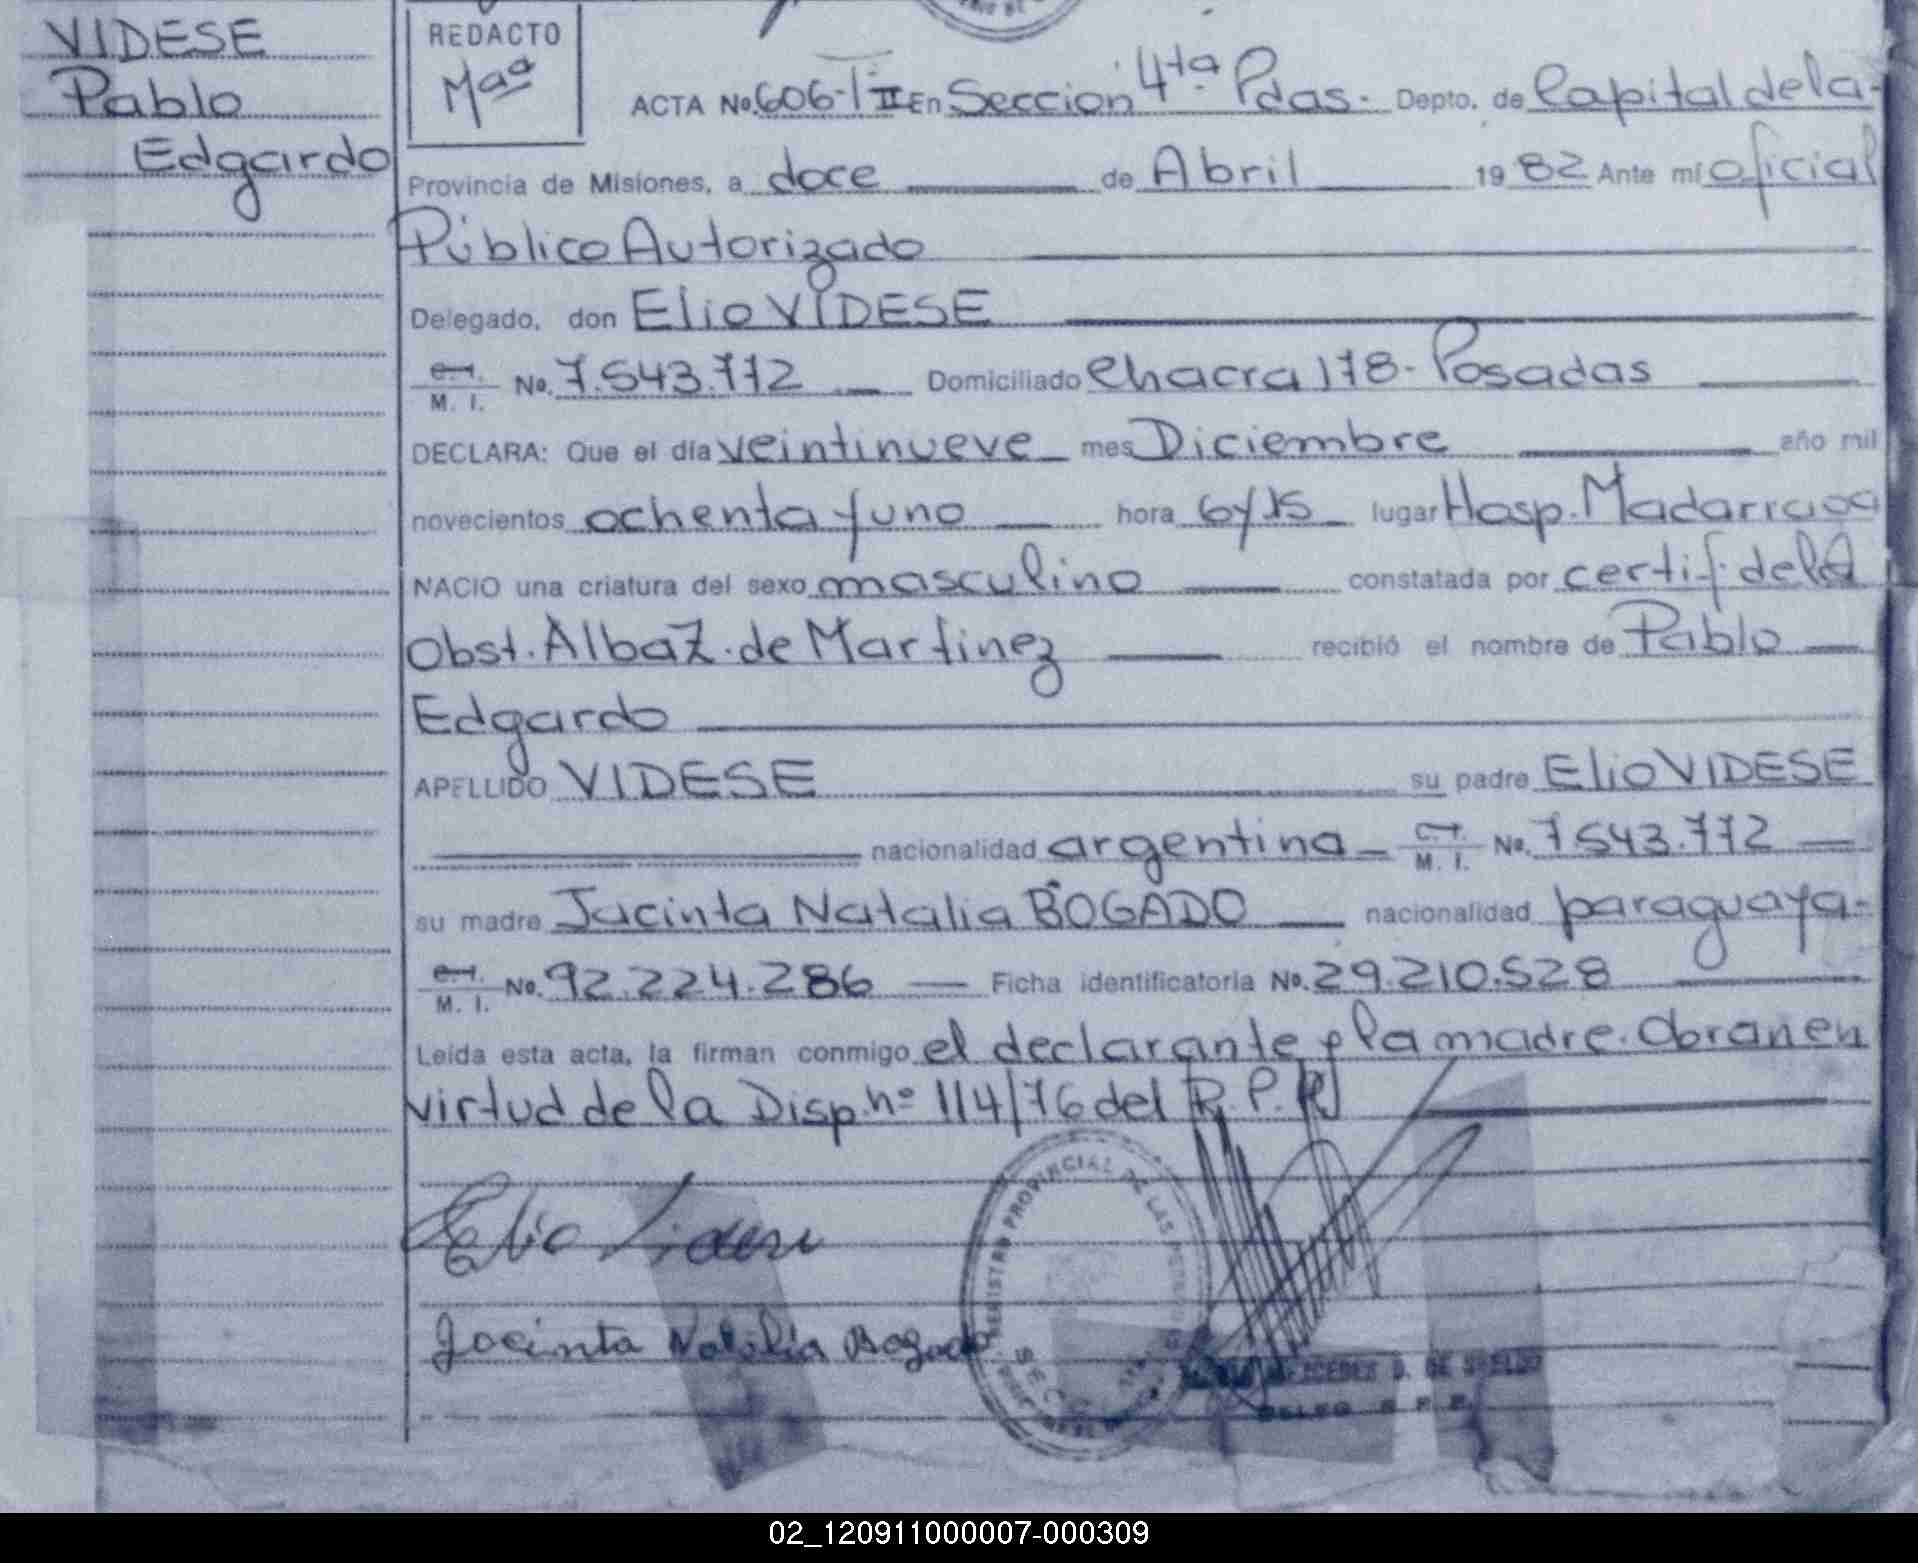 VIDESE
Pablo
Edgardo
REDACTO
Maa
ACTA No. 606-T II En Seccion 4ta. Pdas. Depto. de Capital de la
Provincia de Misiones, a doce de Abril 1982 Ante mí oficial
Público Autorizado
Delegado, don Elio VIDESE
C.I. M. I. No. 7.543.772 Domiciliado Chacra 178. Posadas
DECLARA: Que el día veintinueve mes Diciembre año mil
novecientos ochenta y uno hora 6y15 lugar Hosp. Madarriaga
NACIO una criatura del sexo masculino constatada por certif. de la
Obst. Alba Z. de Martinez recibió el nombre de Pablo
Edgardo
APELLIDO VIDESE su padre Elio VIDESE
nacionalidad argentina C.I. M. I. No. 7.543.772
su madre Jacinta Natalia BOGADO nacionalidad paraguaya-
C.I. M. I. No. 92.224.286 Ficha identificatoria No. 29.210.528
Leída esta acta, la firman conmigo el declarante y la madre. Obran en
virtud de la Disp. nº 114/76 del R.P.P.
Elio Videse
Jacinta Natalia Bogado
REGISTRO PROVINCIAL DE LAS PERSONAS
DELEG R. P. P.
02_120911000007-000309